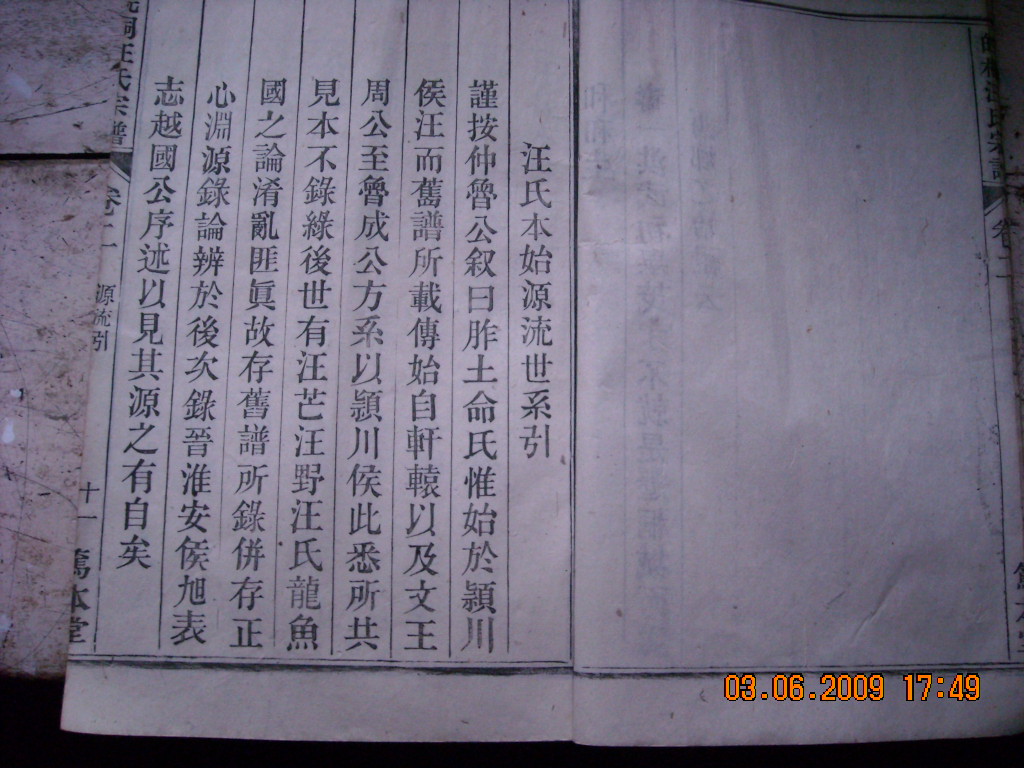 汪氏本始源流世系引
謹按仲魯公叙曰胙土命氏惟始於頴川
侯汪而舊譜所載傳始自軒轅以及文王
周公至魯成公方系以頴川侯此悉所共
見本不錄緣後世有汪芒汪野汪氏龍魚
國之論淆亂匪眞故存舊譜所錄併存正
心淵源錄論辨於後次錄晉淮安侯旭表
志越國公序述以見其源之有自矣
桐汪氏宗譜
卷二
源流引
十一
篤本堂
氏宗譜
卷二
03.06.2009 17:49